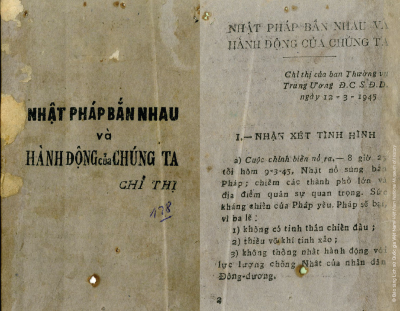 NHẬT PHÁP BẮN NHAU
và
HÀNH ĐỘNG của CHÚNG TA
CHỈ THỊ
NHẬT PHÁP BẮN NHAU VÀ
HÀNH ĐỘNG CỦA CHÚNG TA
Chỉ thị của ban Thường vụ
Trung Ương Đ.C.S.Đ.D.
ngày 12-3-1945
I.— NHẬN XÉT TÌNH HÌNH
a) Cuộc chính biến nổ ra.— 8 giờ 25
tối hôm 9-3-45, Nhật nổ súng bắn
Pháp; chiếm các thành phố lớn và
địa điểm quân sự quan trọng. Sức
kháng chiến của Pháp yếu. Pháp sẽ bại,
vì ba lẽ:
1) không có tinh thần chiến đấu;
2) thiếu võ khí tinh xảo;
3) không thống nhất hành động với
lực lượng chống Nhật của nhân dân
Đông-dương.
2